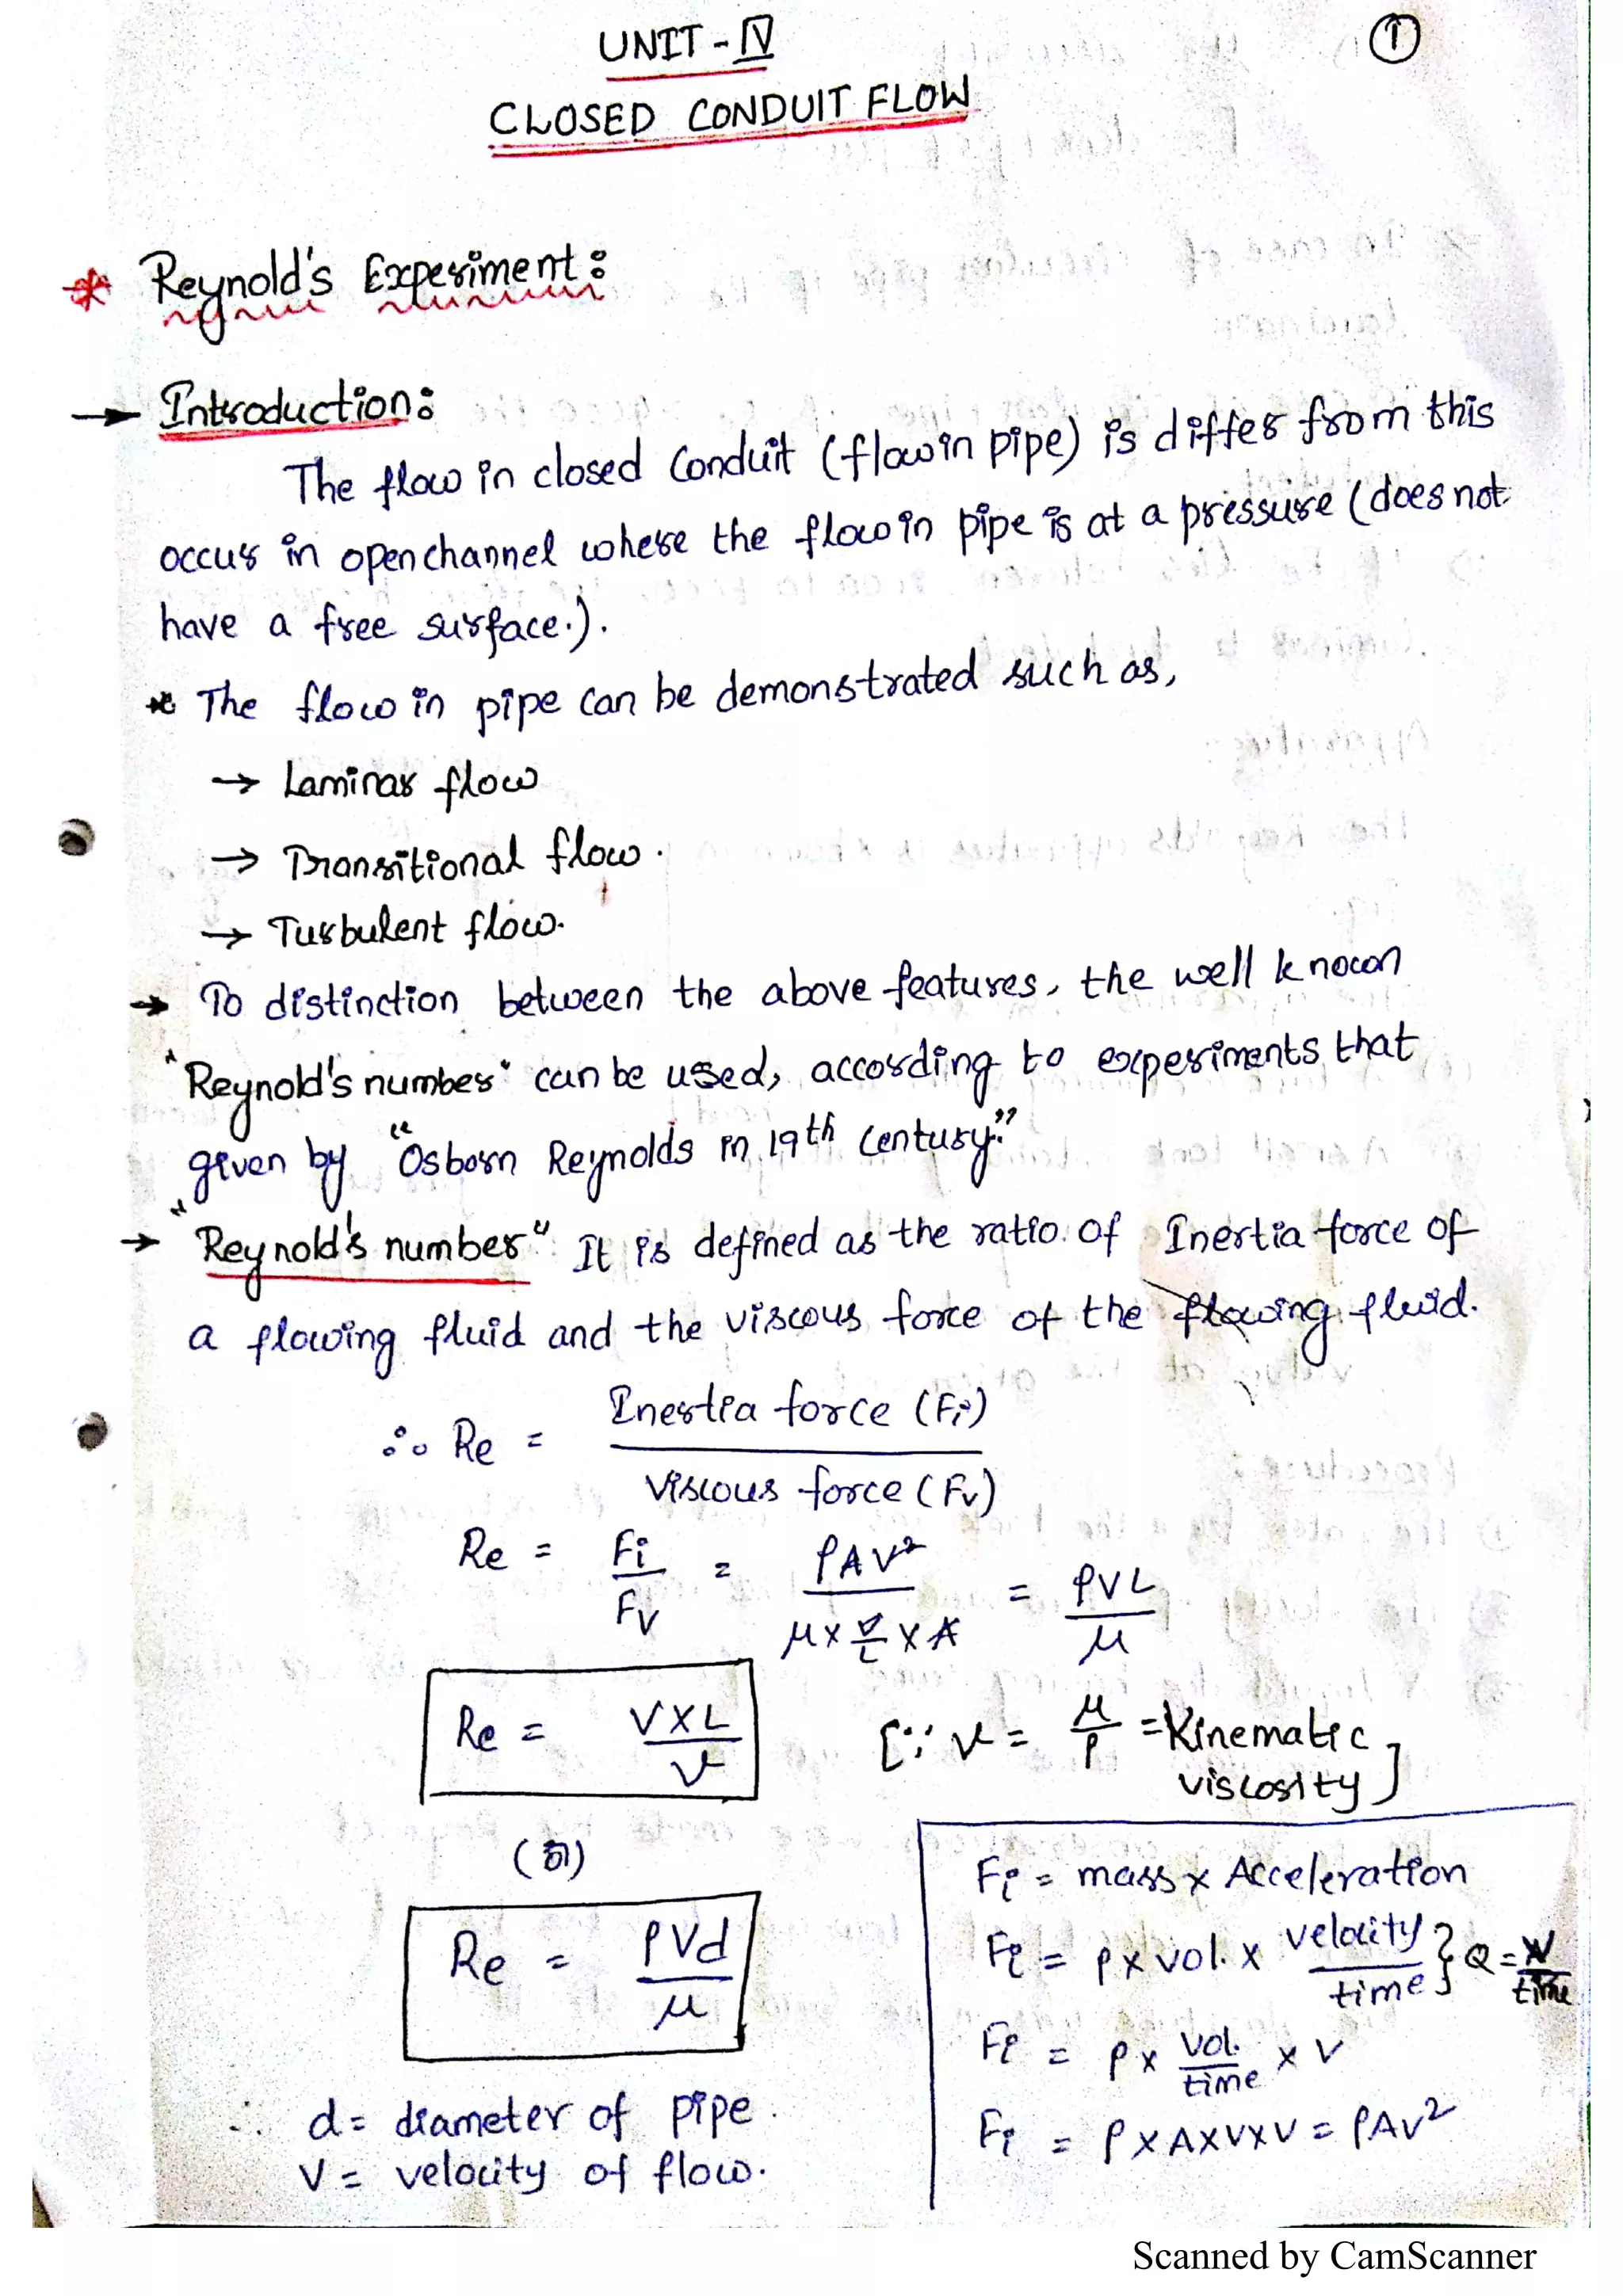 UNIT - IV
①
CLOSED CONDUIT FLOW
* Reynold's Experiment:
→ Introduction:
The flow in closed Conduit (flow in pipe) is differ from this
occur in open channel where the flow in pipe is at a pressure (does not
have a free surface.).
* The flow in pipe can be demonstrated such as,
→ Laminar flow
→ Transitional flow.
→ Turbulent flow.
→ To distinction between the above features, the well known
"Reynold's number" can be used, according to experiments that
given by "Osborn Reynolds in 19th Century."
→ "Reynold's number" It is defined as the ratio of Inertia force of
a flowing fluid and the viscous force of the flowing fluid.
∴ Re = Inertia force (Fi) / Viscous force (Fv)
Re = Fi / Fv = ρAV² / μ × V/L × A = ρVL / μ
Re = V×L / ν [∵ ν = μ/ρ = Kinematic viscosity]
(or)
Re = ρVd / μ
d = diameter of pipe.
V = velocity of flow.
Fi = mass × Acceleration
Fi = ρ × vol. × velocity / time } Q = V / time
Fi = ρ × vol. / time × V
Fi = ρ × A × V × V = ρAV²
Scanned by CamScanner